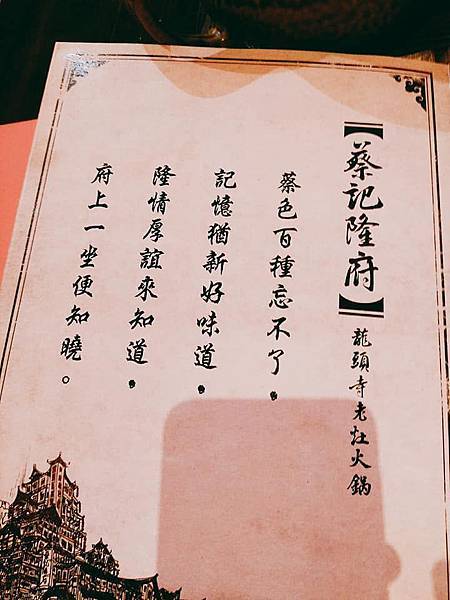 【蔡記隆府】龍頭寺老灶火鍋
蔡色百種忘不了，
記憶猶新好味道，
隆情厚誼來知道，
府上一坐便知曉。